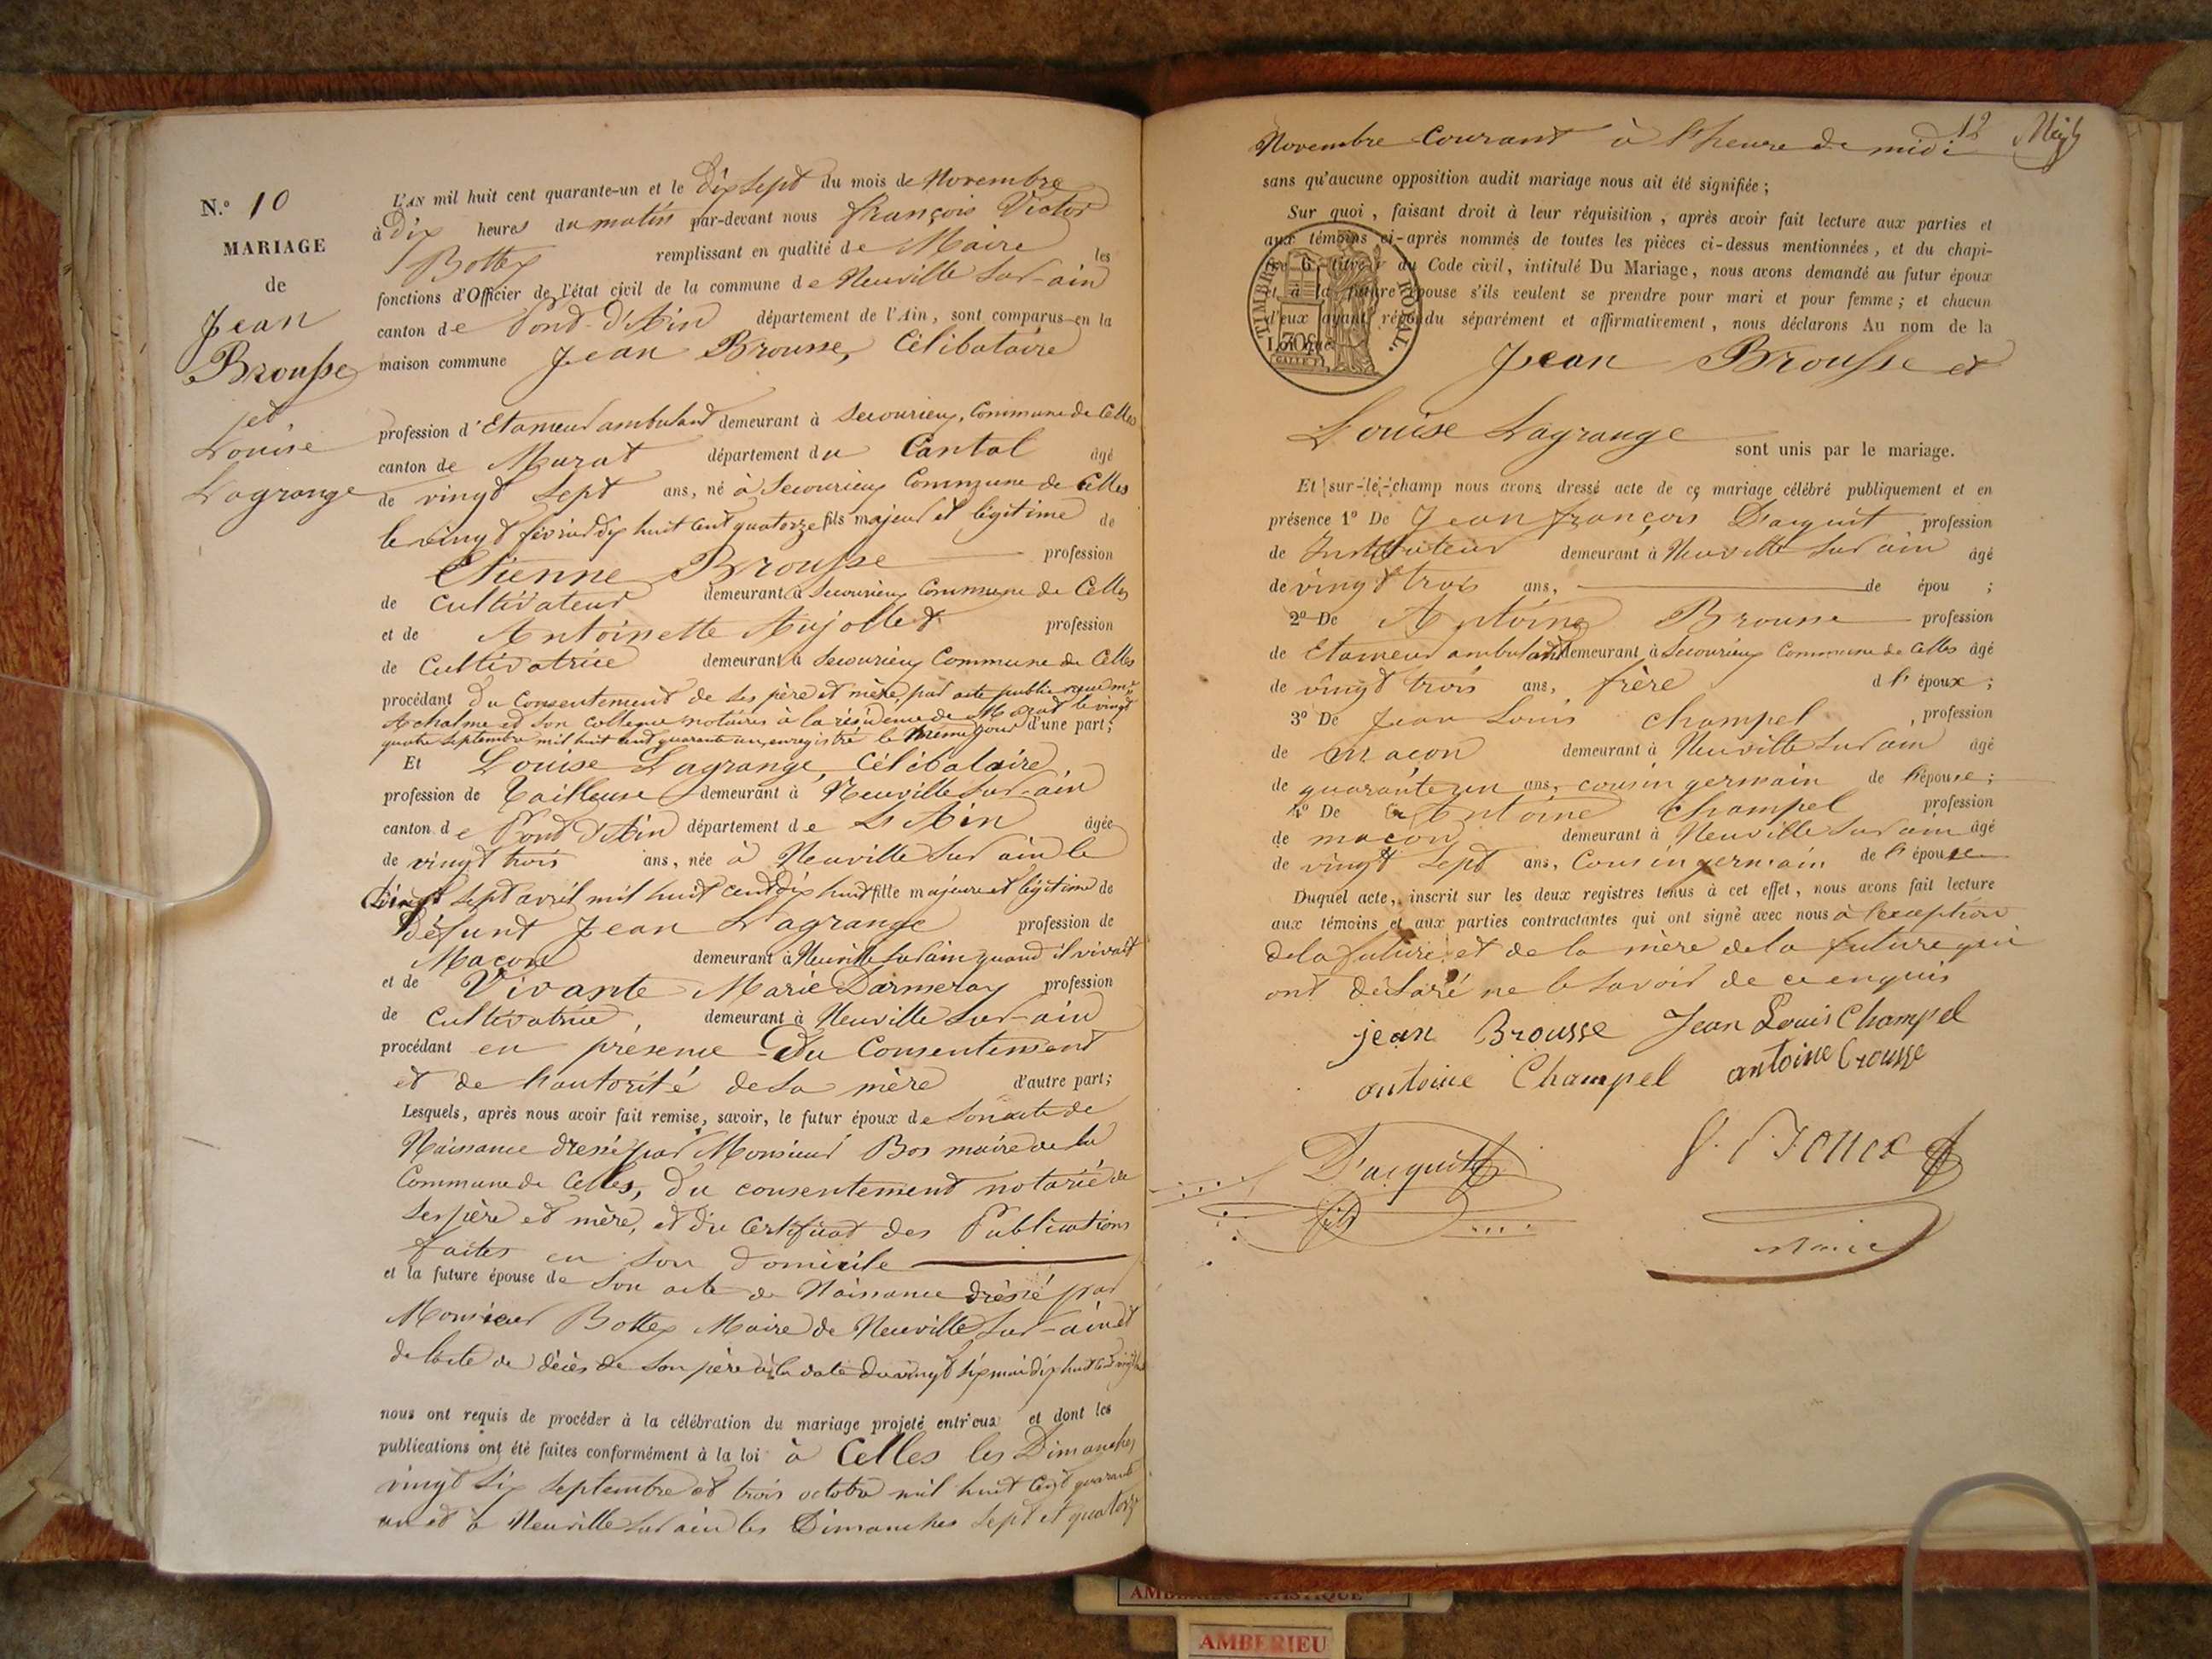 N.º 10
MARIAGE
de
Jean
Brousse
et
Louise
Lagrange
L'AN mil huit cent quarante-un et le dix sept du mois de Novembre
à Dix heures du matin par-devant nous françois Victor
Bottex remplissant en qualité de Maire les
fonctions d'Officier de l'état civil de la commune de Neuville sur-ain
canton de Pont-d'Ain département de l'Ain, sont comparus en la
maison commune Jean Brousse, Célibataire
profession d'Etameur ambulant demeurant à Secourieux, Commune de Celles
canton de Murat département du Cantal âgé
de vingt sept ans, né à Secourieux Commune de Celles
le vingt février dix huit cent quatorze fils majeur et légitime de
Etienne Brousse profession
de Cultivateur demeurant à Secourieux Commune de Celles
et de Antoinette Aujollet profession
de Cultivatrice demeurant à Secourieux Commune de Celles
procédant du Consentement de ses père et mère, par acte public reçu me
Achalme et son collegue notaires à la résidence de Murat le vingt
quatre septembre mil huit cent quarante un, enregistré le même jour d'une part;
Et Louise Lagrange, Célibataire
profession de Tailleuse demeurant à Neuville sur-ain
canton de Pont d'Ain département de L'Ain âgée
de vingt trois ans, née à Neuville sur ain le
Vingt sept avril mil huit cent dix huit fille majeure et légitime de
défunt Jean Lagrange profession de
Macon demeurant à Neuville sur ain quand il vivait
et de Vivante Marie Darmeray profession
de Cultivatrice, demeurant à Neuville sur-ain
procédant en presence Du Consentement
et de l'autorité de sa mère d'autre part;
Lesquels, après nous avoir fait remise, savoir, le futur époux de son acte de
Naissance dressé par Monsieur Bos maire de la
Commune de Celles, du consentement notarié de
ses père et mère, et du Certificat des Publications
faites en son domicile
et la future épouse de son acte de Naissance dressé par
Monsieur Bottex Maire de Neuville sur-ain et
de l'acte de décès de son père à la date du vingt six mai dix huit cent
nous ont requis de procéder à la célébration du mariage projeté entr'eux et dont les
publications ont été faites conformément à la loi à Celles les Dimanches
vingt six septembre et trois octobre mil huit cent quarante
un et à Neuville sur ain les Dimanches sept et quatorze
12
Novembre Courant à l'heure de midi
sans qu'aucune opposition audit mariage nous ait été signifiée;
Sur quoi, faisant droit à leur réquisition, après avoir fait lecture aux parties et
aux témoins ci-après nommés de toutes les pièces ci-dessus mentionnées, et du chapi-
tre 6, titre du Code civil, intitulé Du Mariage, nous avons demandé au futur époux
et à la future épouse s'ils veulent se prendre pour mari et pour femme; et chacun
d'eux ayant répondu séparément et affirmativement, nous déclarons Au nom de la
Loi que Jean Brousse et
TIMBRE ROYAL.
70c
Louise Lagrange sont unis par le mariage.
Et sur-le-champ nous avons dressé acte de ce mariage célébré publiquement et en
présence 1º De Jean françois D'acquit profession
de Instituteur demeurant à Neuville sur ain âgé
de vingt trois ans, de épou ;
2º De Antoine Brousse profession
de Etameur ambulant demeurant à Secourieux Commune de Celles âgé
de vingt trois ans, frère d l' époux;
3º De Jean Louis Champel, profession
de macon demeurant à Neuville sur ain âgé
de quarante un ans, cousin germain de l'épouse;
4º De Antoine Champel profession
de macon demeurant à Neuville sur ain âgé
de vingt sept ans, Cousin germain de l'épouse
Duquel acte, inscrit sur les deux registres tenus à cet effet, nous avons fait lecture
aux témoins et aux parties contractantes qui ont signé avec nous à l'exception
de la future et de la mère de la future qui
ont déclaré ne le savoir de ce enquis
jean Brousse Jean Louis Champel
antoine Champel antoine Brousse
D'acquit
fils
maire
AMBERIEU